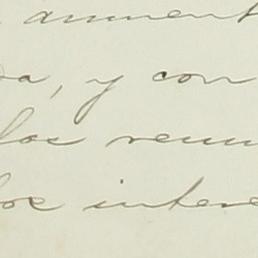 aument
da, y con
los reun
los intere